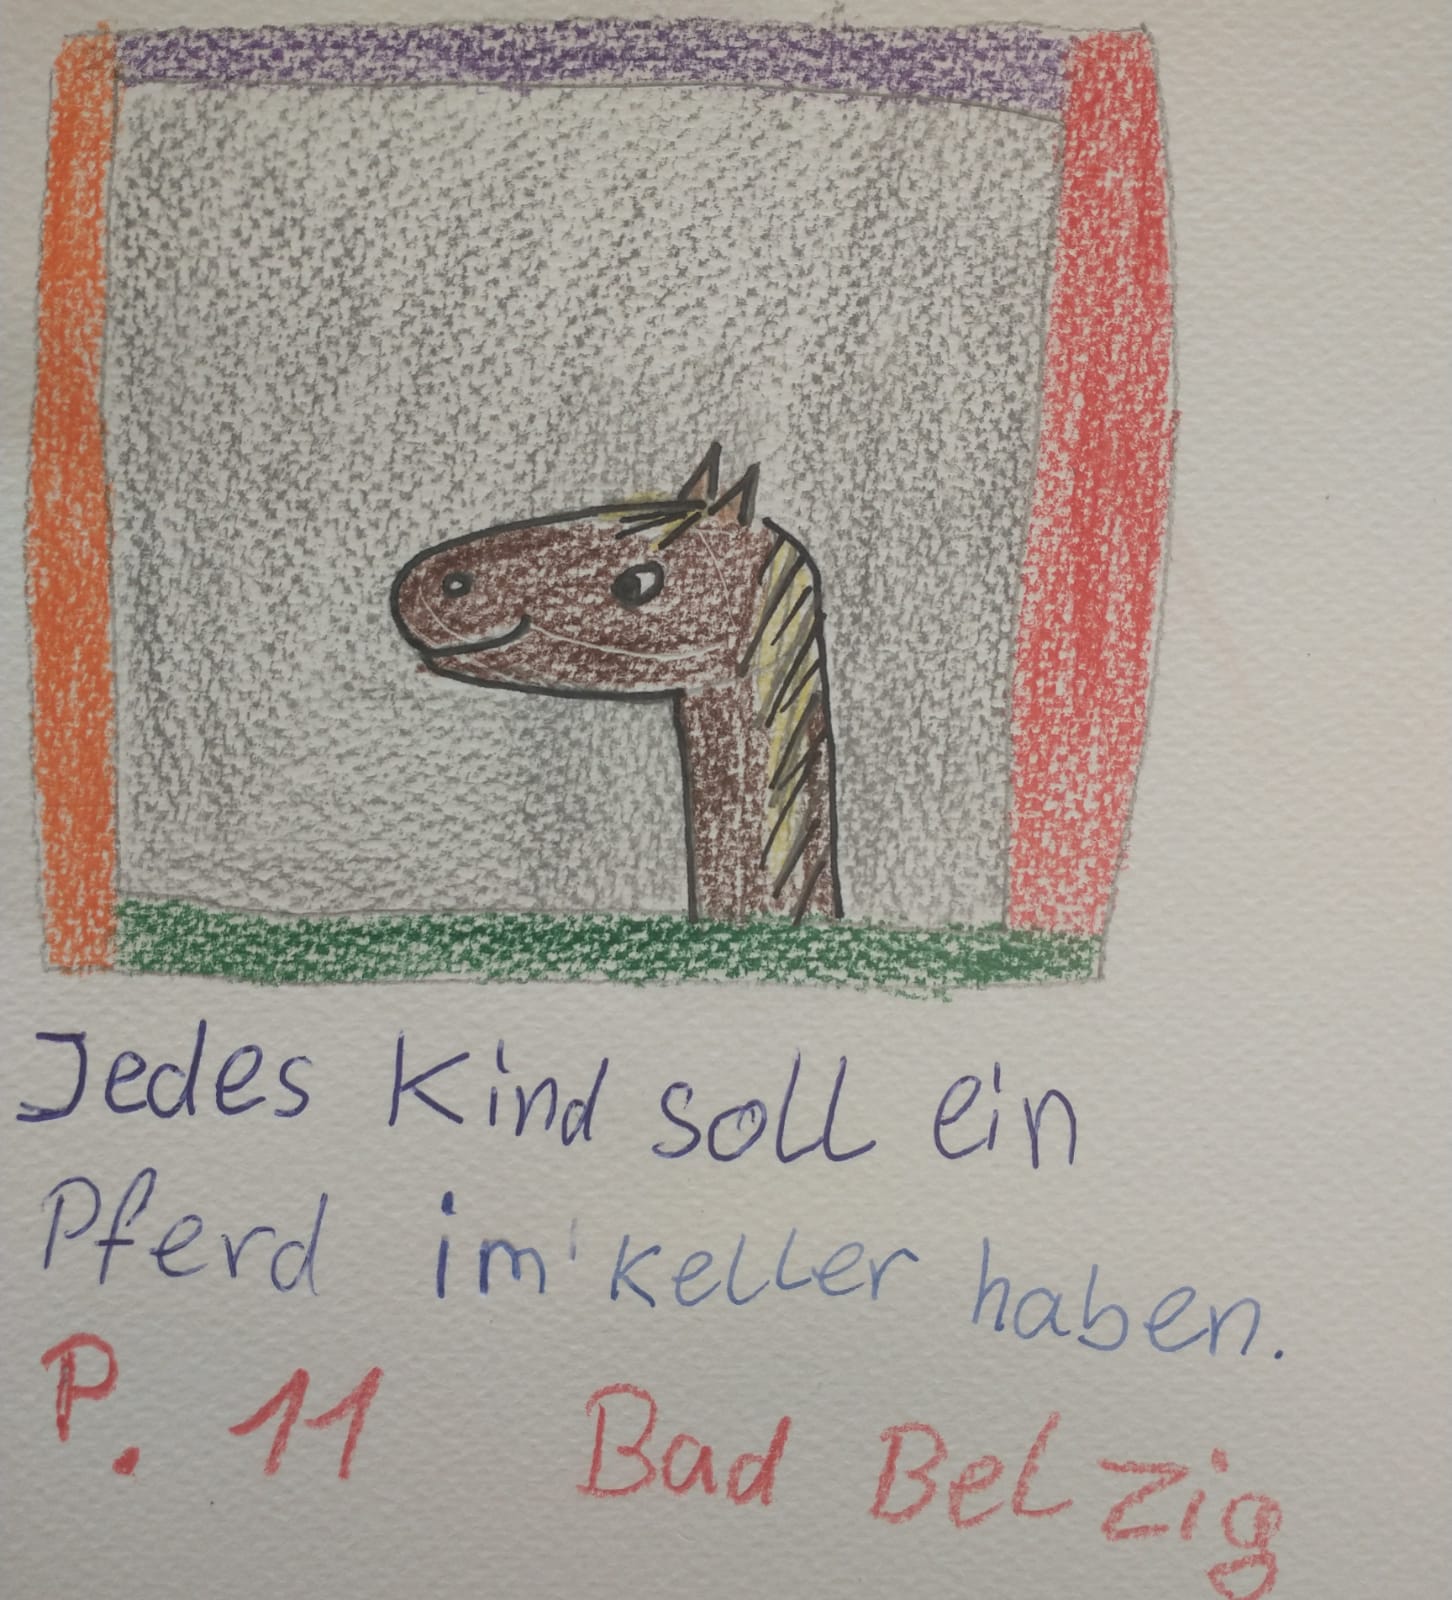 Jedes Kind soll ein
Pferd im Keller haben.
P. 11 Bad Belzig